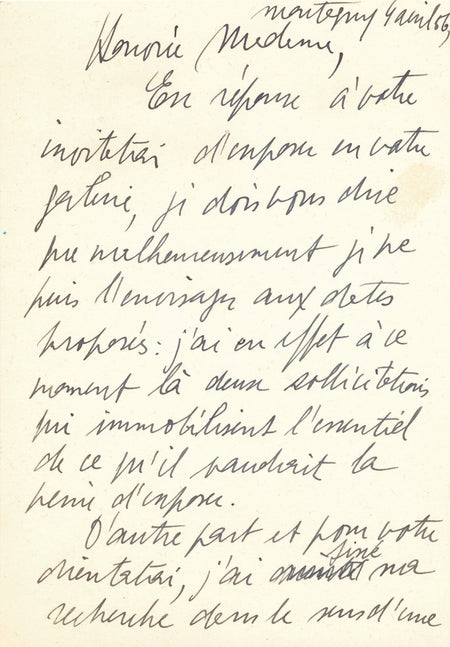 Montigny 4 avril 66
Honorée Madame,
En réponse à votre
invitation d'exposer en votre
galerie, je dois vous dire
que malheureusement je ne
puis l'envisager aux dates
proposés : j'ai en effet à ce
moment là deux sollicitations
qui immobilisent l'essentiel
de ce qu'il vaudrait la
peine d'exposer.
D'autre part et pour votre
orientation, j'ai axé ma
recherche dans le sens d'une